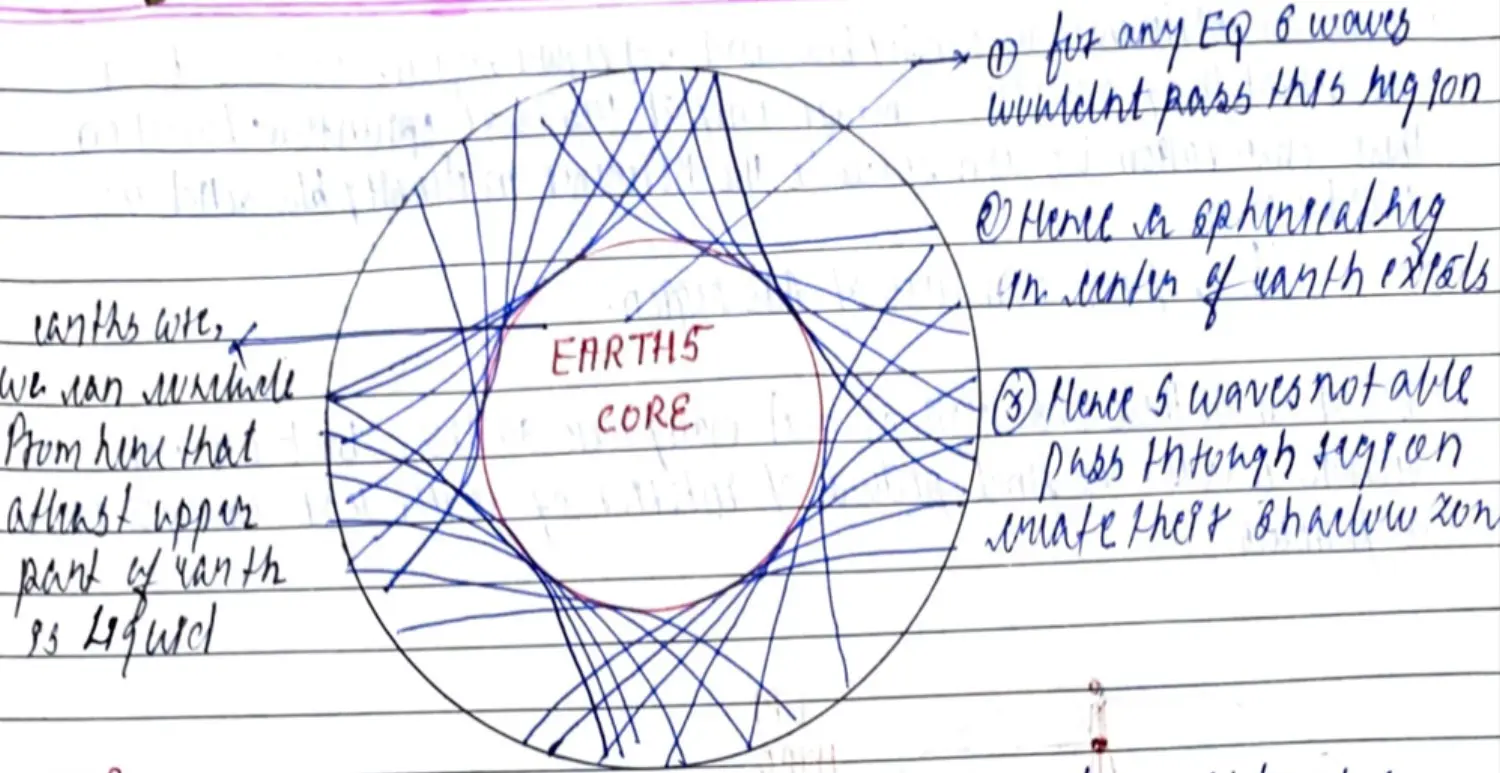 ① for any EQ S waves
wouldnt pass this region
② Hence a spherical reg
in center of earth exists
earths core,
we can conclude
from here that
atleast upper
part of earth
is Liquid
EARTHS
CORE
③ Hence S waves not able
pass through region
create their shadow zon